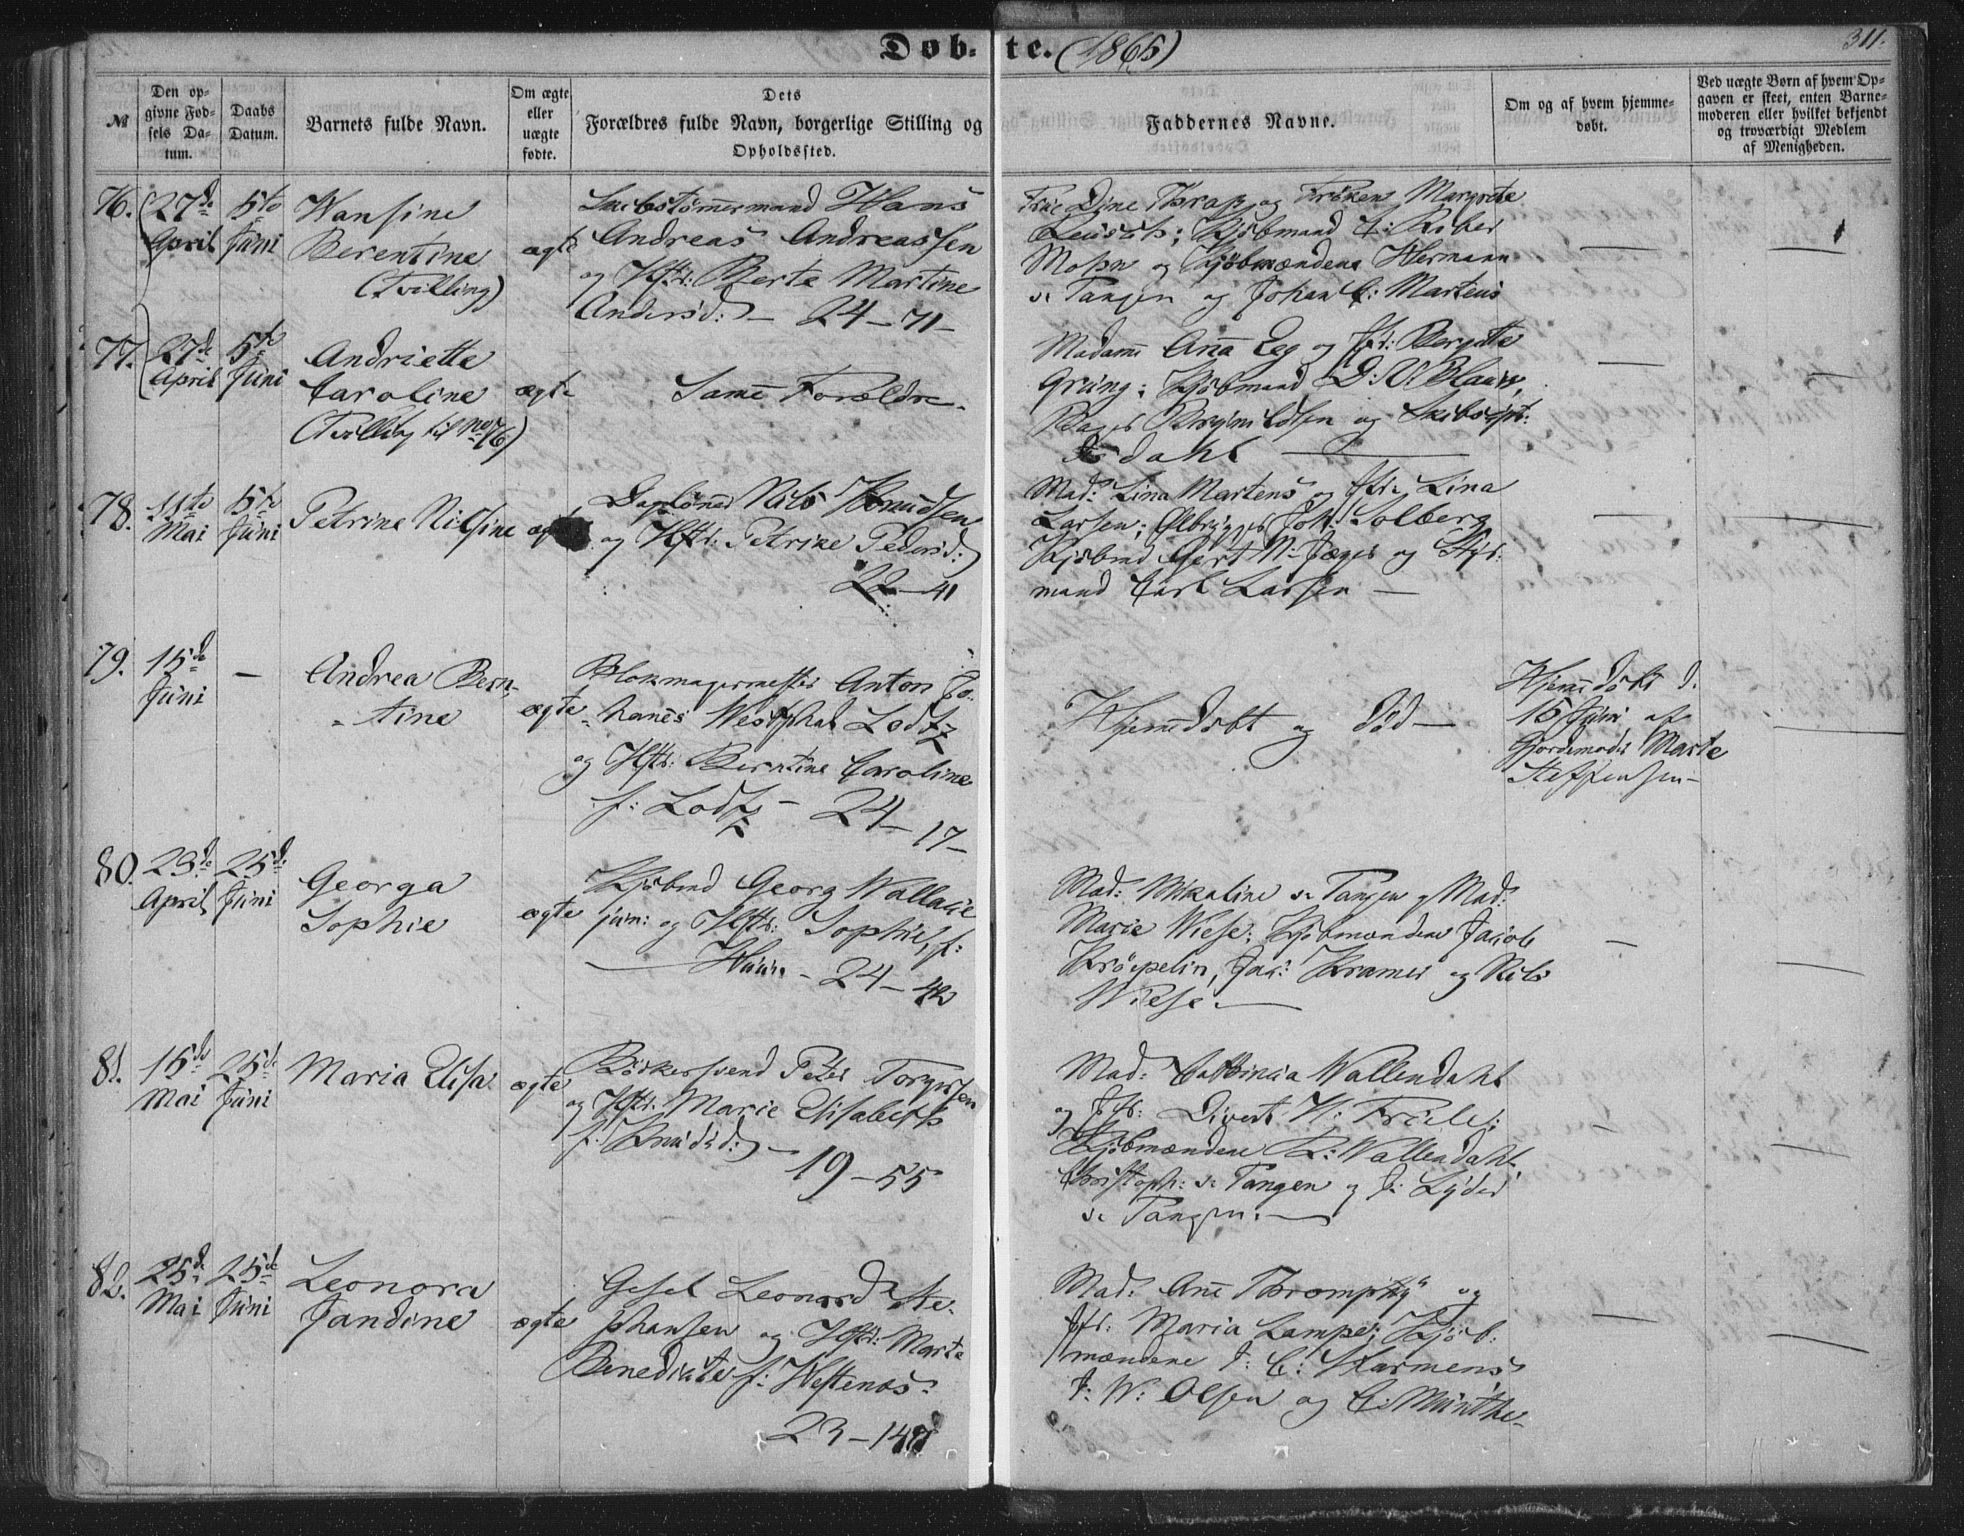 Døb-te. (1865)
311.
№
Den op-
givne Fød-
sels Da-
tum.
Daabs
Datum.
Barnets fulde Navn.
Om ægte
eller
uægte
fødte.
Dets
Forældres fulde Navn, borgerlige Stilling og
Opholdssted.
Faddernes Navne.
Om og af hvem hjemme-
døbt.
Ved uægte Børn af hvem Op-
gaven er skeet, enten Barne-
moderen eller hvilket bekjendt
og troværdigt Medlem
af Menigheden.
76.
27de
April
5te
Juni
Hansine
Berentine
(Tvilling)
ægte
Skibstømmermand Hans
Andreas Andreassen
og Hstr: Berte Martine
Andersd: — 24 — 71 —
Frue Dine Thrap og Frøken Margrete
Kjøbmand C: Riber
Mohn og Kjøbmændene Hermann
v. Tangen og Johan C: Martens
77.
27de
April
5te
Juni
Andriette
Caroline
(Tvilling til No 76)
ægte
Samme Forældre.
Madame Anna Eeg og Jfr: Bergitte
Grüng; Kjøbmand D: V:
Bager Brynildsen og Skibscpt:
dahl
78.
11te
Mai
5te
Juni
Petrine Nilsine
ægte
Daglønner Nils Knudsen
og Hstr: Petrine Pedersd:
22 — 41
Mad: Lina Martens og Jfr: Lina
Larsen; Ølbrygger Joh: Solberg
Kjøbmd Gert N: Jæger og Styr-
mand Carl Larsen —
79.
15de
Juni
—
Andrea Bern-
tine
ægte
Blokmagermester Anton Jo-
hannes Westphal Lodtz
og Hstr: Berntine Caroline
f: Lodtz — 24 — 17 —
Hjemmedøbt og død —
Hjemmedøbt d.
15 Juni af
Gjordemoder Marte
Steffensen —
80.
23de
April
25de
Juni
Georga
Sophie
ægte
Kjøbmd Georg Wallace
jun: og Hstr: Sophie f:
— 24 — 42
Mad: Mikaline v. Tangen og Mad:
Marie Wiese; Kjøbmændene Jacob
Krøepelin, Jac: Kramer og Nils
Wiese. —
81.
15de
Mai
25de
Juni
Maria Elisa
ægte
Bødkersvend Peter Torgersen
og Hstr: Marie Elisabeth
f: Knudsd: —
19 — 55
Mad: Cathinca Wallendahl
og Jfr: Divert H: Friele;
Kjøbmændene R: Wallendahl
Christoph: v. Tangen og J: Lyder
v. Tangen. —
82.
25de
Mai
25de
Juni
Leonora
Jandine
ægte
Gesel Leonard Ste-
phansen og Hstr: Marte
Benedicte f: Westenæs.
23 — 147
Mad: Ane Thromphy og
Jfr: Maria Lampe; Kjøb-
mændene J: C: Harmens,
J: W: Olsen og C: Münthe —